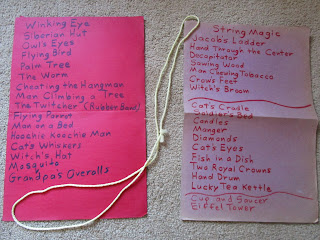 Winking Eye
Siberian Hut
Owl's Eyes
Flying Bird
Palm Tree
The Worm
Cheating the Hangman
Man Climbing a Tree
The Twitcher (Rubber Band)
Flying Parrot
Man on a Bed
Hoochie Koochie Man
Cat's Whiskers
Witch's Hat
Mosquito
Grandpa's Overalls
String Magic
Jacob's Ladder
Hand Through the Center
Decapitator
Sawing Wood
Man Chewing Tobacco
Crow's Feet
Witch's Broom
Cat's Cradle
Soldier's Bed
Candles
Manger
Diamonds
Cat's Eyes
Fish in a Dish
Two Royal Crowns
Hand Drum
Lucky Tea Kettle
Cup and Saucer
Eiffel Tower